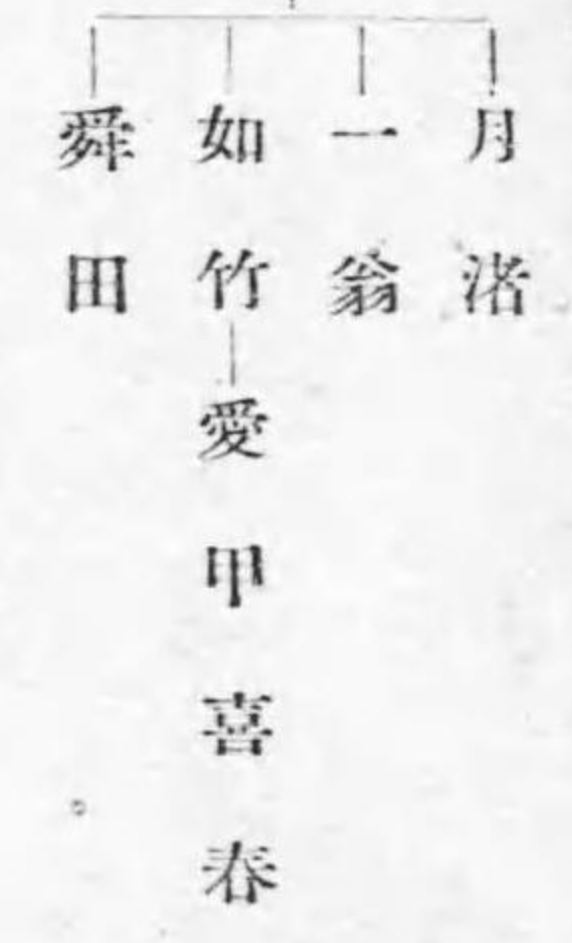 月渚
一翁
如竹―愛甲喜春
舜田